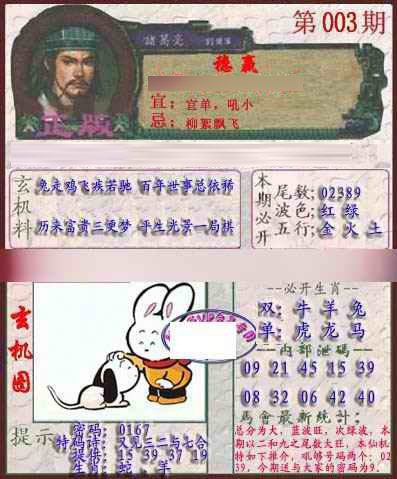 第003期
諸葛亮
稳赢
宜：宜单，吼小
忌：柳絮飘飞
正版
玄机料
兔走鸡飞疾若驰 百年世事总依稀
历来富贵三更梦 平生光景一局棋
本期必开
尾数;02389
波色;红 绿
五行;金 火 土
玄机图
必开生肖
双:牛 羊 兔
单:虎 龙 马
内部泄码
09 21 45 15 39
08 32 06 42 40
馬會最新統計:
总分为大，蓝波旺，次绿波，本
期以二和九之尾数大旺，本仙机
特如下推介，吼够号码两个：02
39，今期送与大家的密码为9。
提示
密码: 0167
特码诗: 又见三二与七合
提供: 15 39 37 19
生肖: 蛇、羊